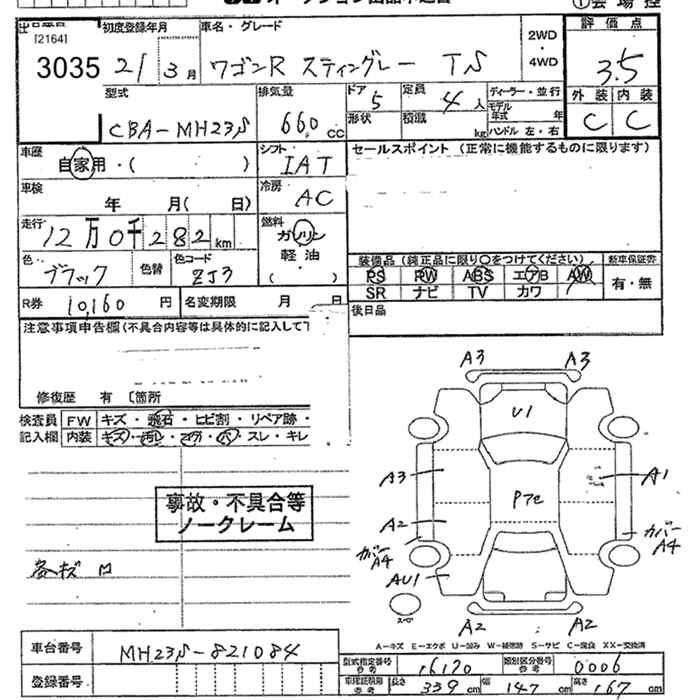 [2164]
初度登録年月 車名・グレード 2WD・4WD 評価点
3035 21 3月 ワゴンR スティングレー TS 3.5
型式 排気量 ドア 定員 ディーラー・並行 外装 内装
CBA-MH23S 660 cc 5 4人 モデル年式 年 C C
形状 積載 kg ハンドル 左・右
車歴 自家用・( ) シフト IAT セールスポイント (正常に機能するものに限ります)
車検 年 月( 日) 冷房 AC
走行 12万0千282km 燃料 ガソリン 軽油 ( )
色 ブラック 色替 色コード ZJ3
装備品 (純正品に限り○をつけてください) 新車保証書
PS PW ABS エアB AW 有・無
SR ナビ TV カワ
R券 10,160 円 名変期限 月 日 後日品
注意事項申告欄(不具合内容等は具体的に記入して下
修復歴 有 〔箇所
検査員 FW キズ・飛石・ヒビ割・リペア跡・
記入欄 内装 キズ・汚レ・コゲ・穴・スレ・キレ
A3 A3
U1
A3 A1
P7c
A2 カバーA4
カバーA4
AU1
A2 A2
事故・不具合等
ノークレーム
各キズ
A=キズ E=エクボ U=凹み W=補修跡 S=サビ C=腐食 XX=交換済
車台番号 MH23S-821084
登録番号
型式指定番号 参考 16170 類別区分番号 参考 0006
車検証記載 参考 長さ 339 cm 幅 147 cm 高さ 167 cm